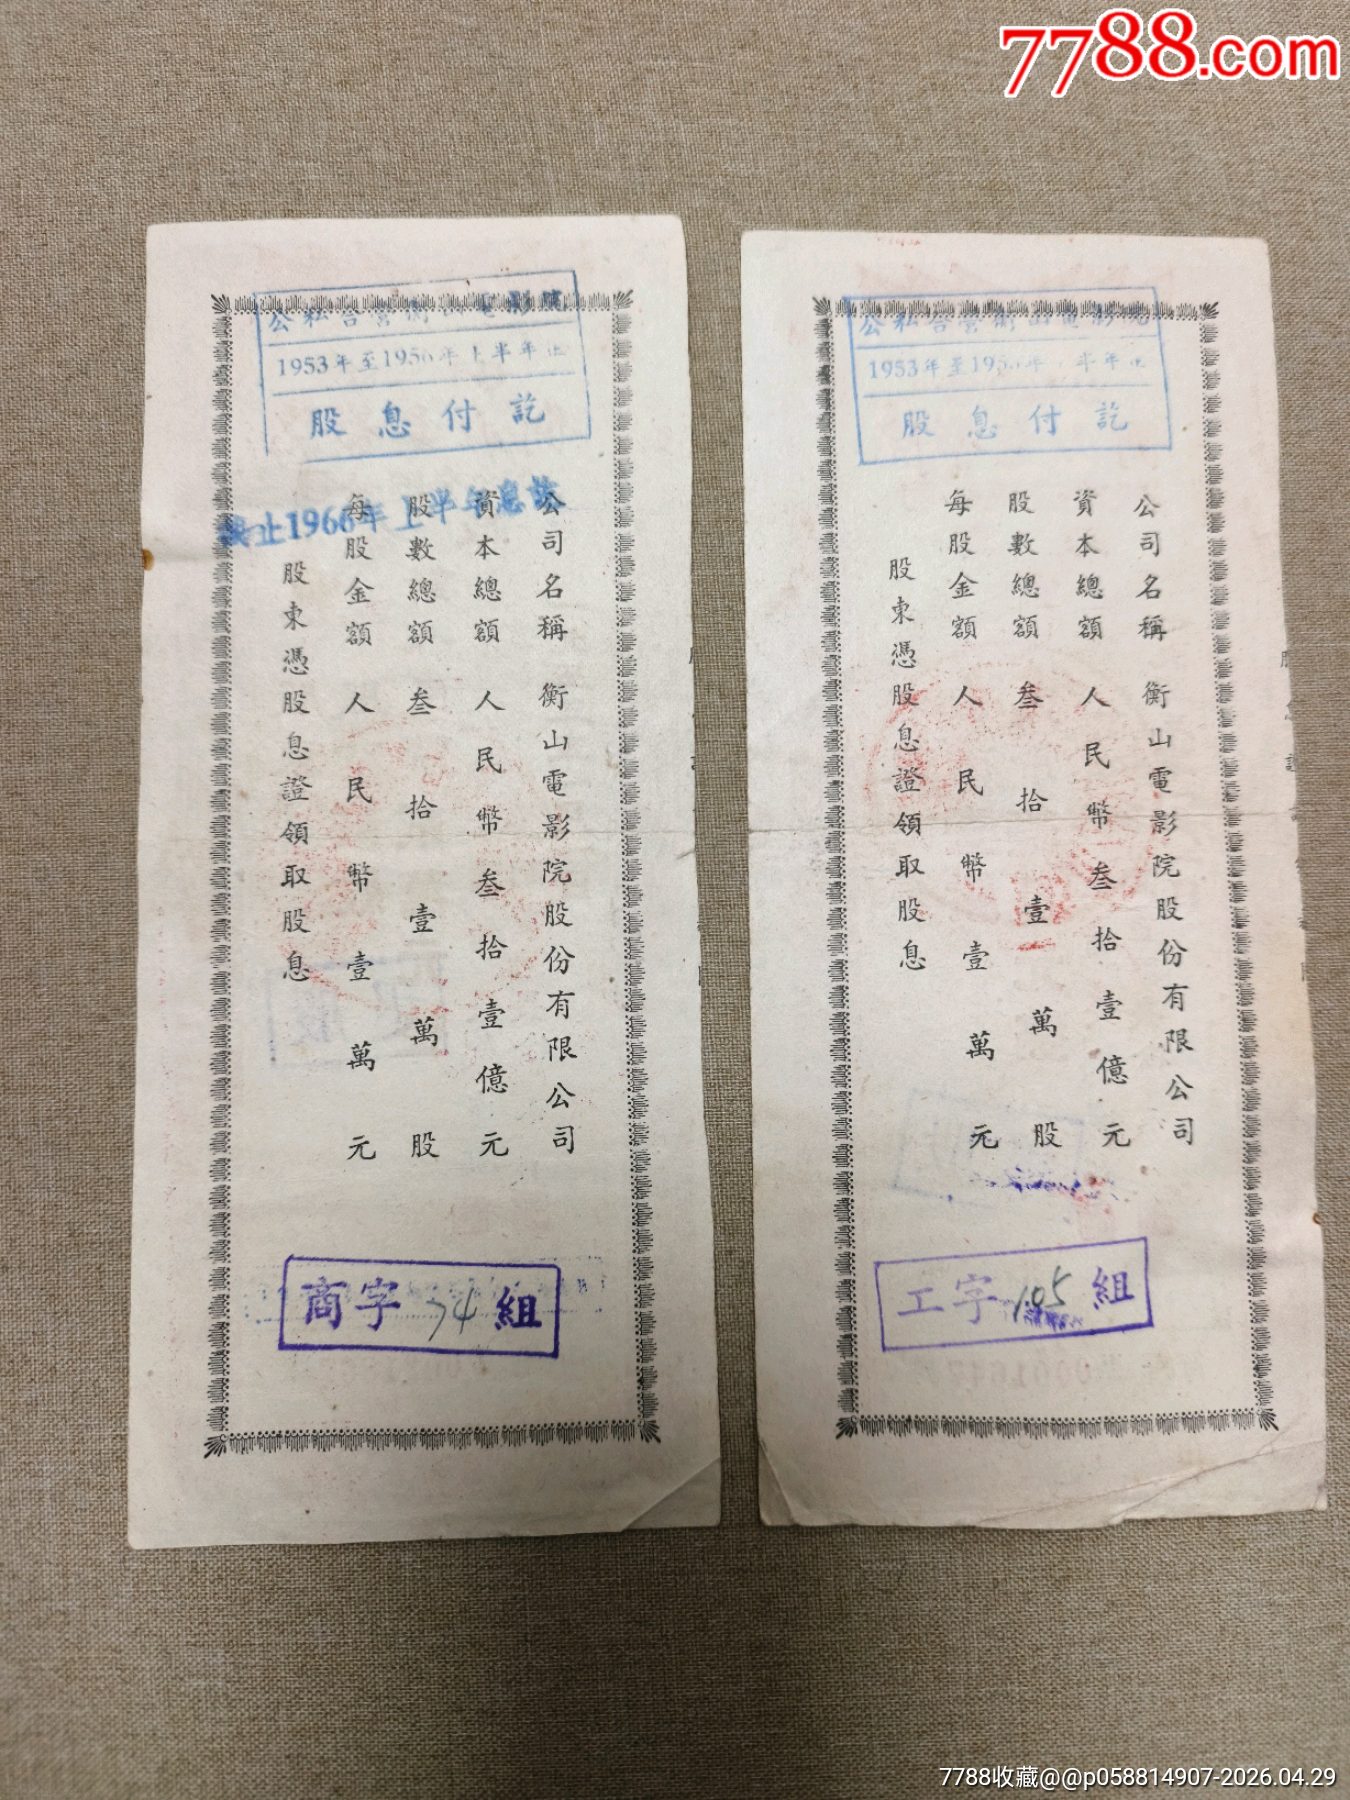 7788.com
公私合营衡山電影院
1953年至1956年上半年止
股息付訖
止1966年上半年息訖
公司名稱 衡山電影院股份有限公司
資本總額 人民幣叁拾壹億元
股數總額 叁拾壹萬股
每股金額 人民幣壹萬元
股東憑股息證領取股息
商字74組
公私合营衡山電影院
1953年至195年半年止
股息付訖
公司名稱 衡山電影院股份有限公司
資本總額 人民幣叁拾壹億元
股數總額 叁拾壹萬股
每股金額 人民幣壹萬元
股東憑股息證領取股息
工字105組
7788收藏@@p058814907-2026.04.29